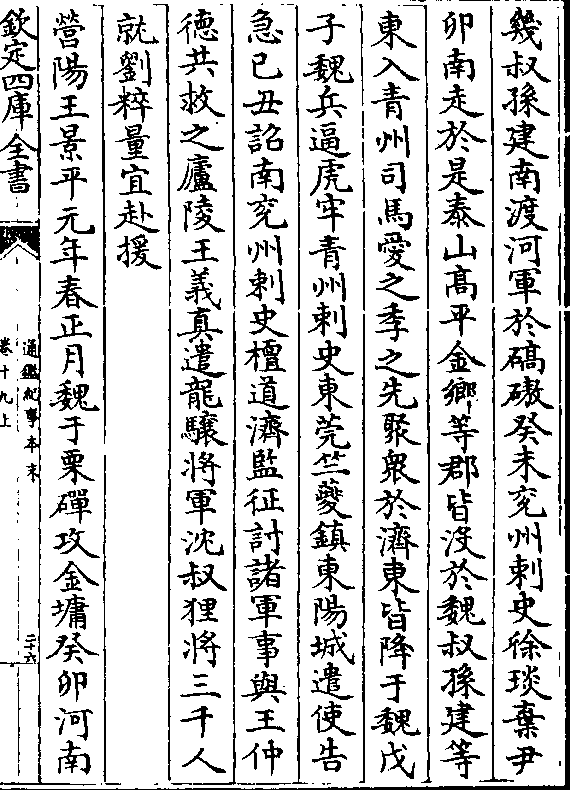 幾叔孫建南渡河軍於碻磝癸未兖州刺史徐琰棄尹
卯南走於是泰山髙平金鄉等郡皆沒於魏叔孫建等
東入青州司馬愛之季之先聚衆於濟東皆降于魏戊
子魏兵逼虎牢青州刺史東莞竺夔鎮東陽城遣使告
急已丑詔南兖州刺史檀道濟監征討諸軍事與王仲
德共救之廬陵王義真遣龍驤將軍沈叔狸將三千人
就劉粹量宜赴援
營陽王景平元年春正月魏于栗磾攻金墉癸卯河南
欽定四庫全書
通鑑紀事本末
卷十九上
二十六